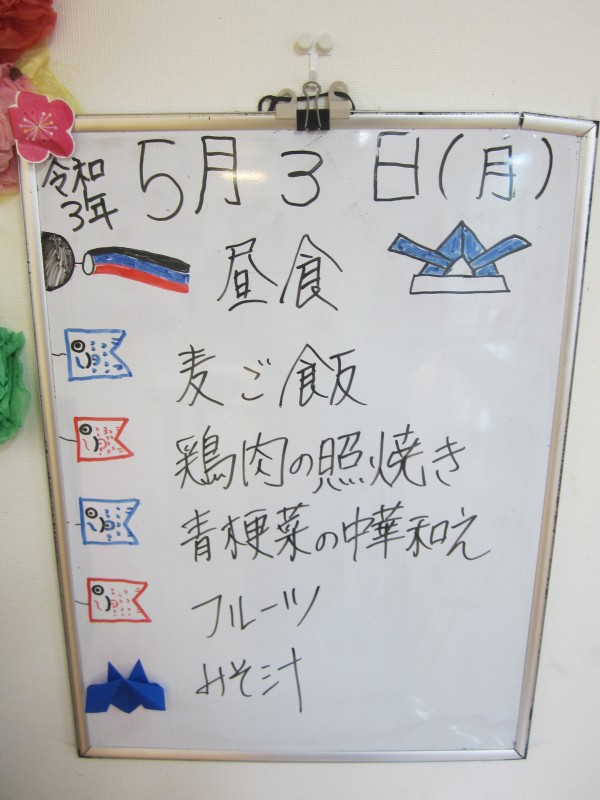 令和
3年
5月3日(月)
昼食
麦ご飯
鶏肉の照焼き
青梗菜の中華和え
フルーツ
みそ汁